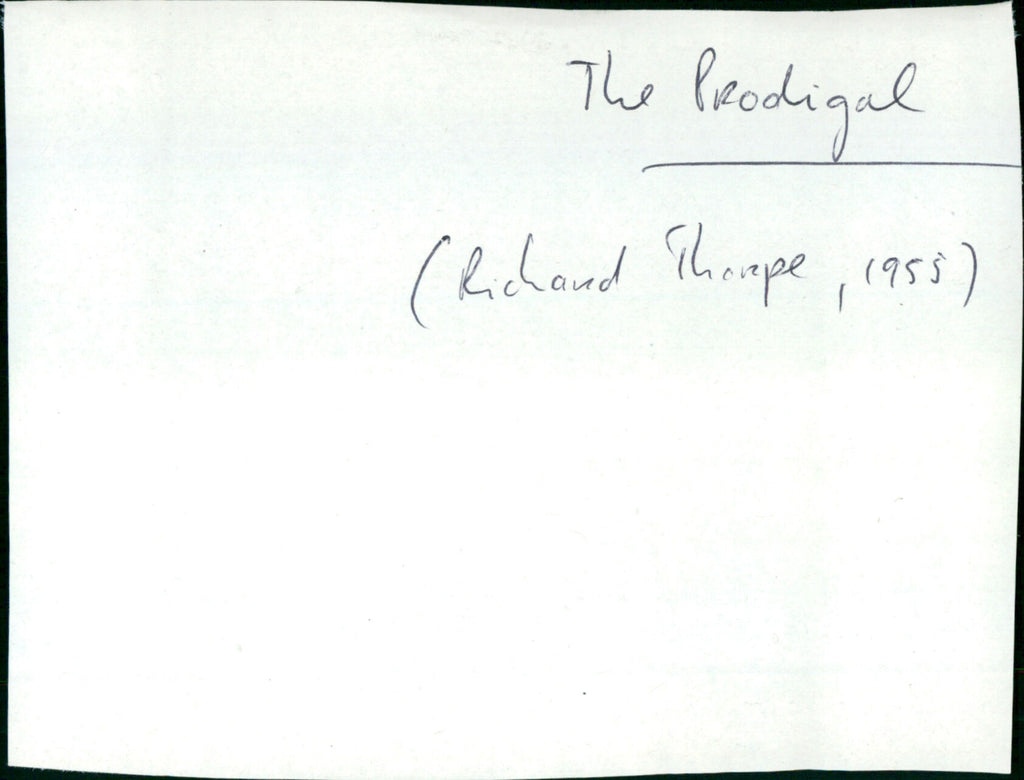 The Prodigal
(Richard Thorpe, 1955)